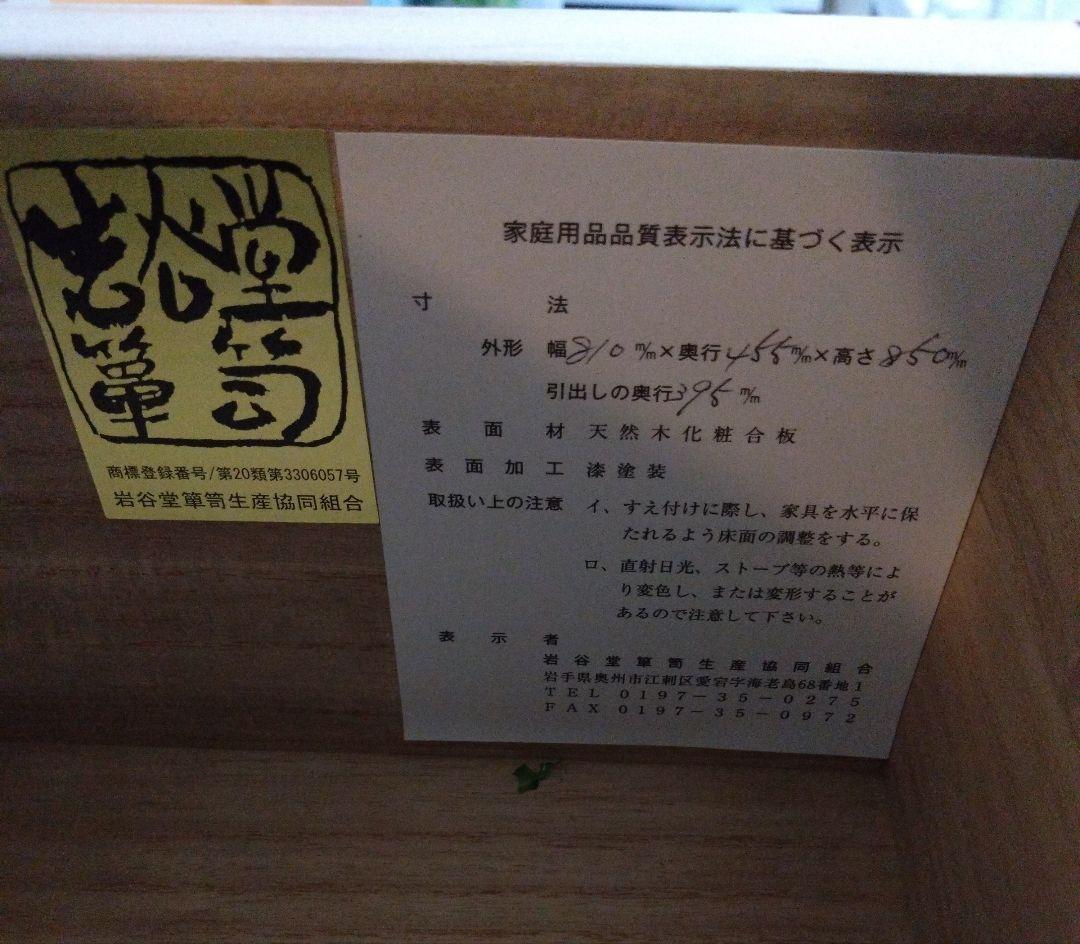 岩谷堂
箪笥
商標登録番号/第20類第3306057号
岩谷堂箪笥生産協同組合
家庭用品品質表示法に基づく表示
寸法
外形 幅810m/m×奥行455m/m×高さ850m/m
引出しの奥行395m/m
表面材 天然木化粧合板
表面加工 漆塗装
取扱い上の注意 イ、すえ付けに際し、家具を水平に保
たれるよう床面の調整をする。
ロ、直射日光、ストーブ等の熱等によ
り変色し、または変形することが
あるので注意して下さい。
表示者
岩谷堂箪笥生産協同組合
岩手県奥州市江刺区愛宕字海老島68番地1
TEL 0197-35-0275
FAX 0197-35-0972